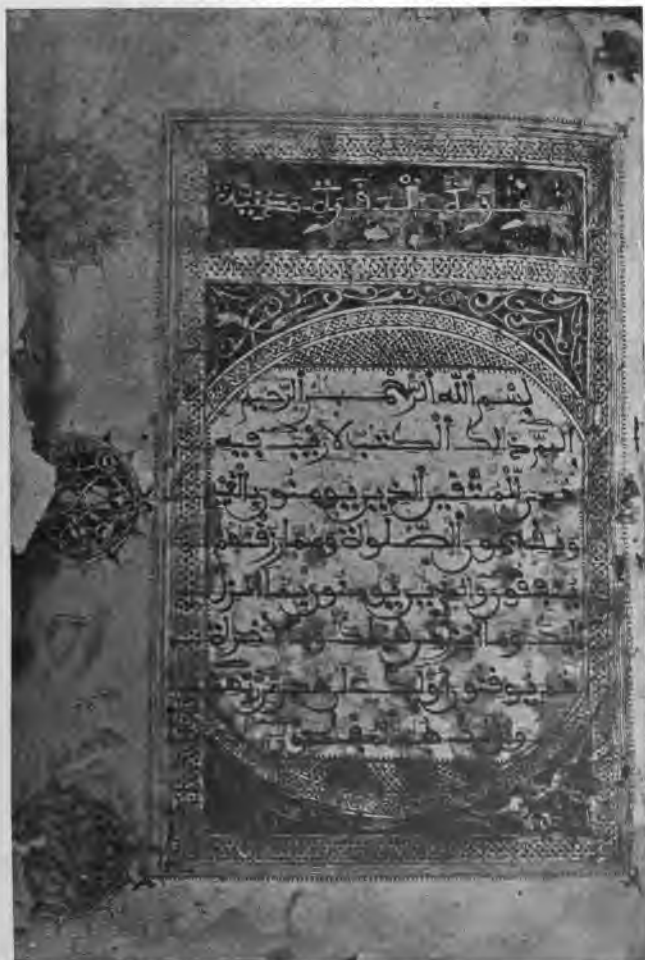 بسم الله الرحمن الرحيم
الم ذلك الكتب لا ريب فيه
هدى للمتقين الذين يومنون بالغيب
ويقيمون الصلوة ومما رزقنهم
ينفقون والذين يومنون بما أنزل
إليك وما أنزل من قبلك وبالاخرة
هم يوقنون أوليك على هدى من ربهم
وأوليك هم المفلحون